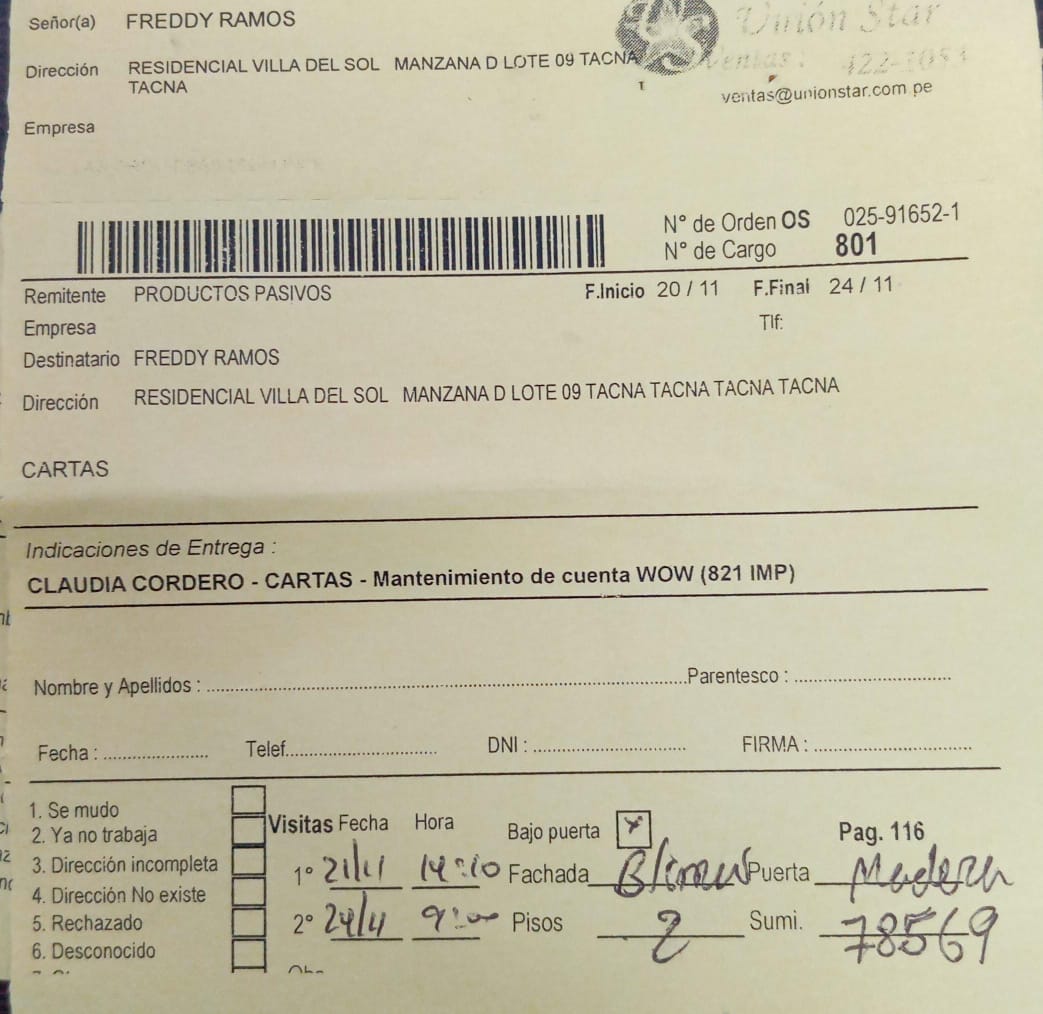 Señor(a) FREDDY RAMOS
Unión Star
Dirección RESIDENCIAL VILLA DEL SOL MANZANA D LOTE 09 TACNA
TACNA
Ventas: 422-1053
ventas@unionstar.com.pe
Empresa
N° de Orden OS 025-91652-1
N° de Cargo 801
Remitente PRODUCTOS PASIVOS F.Inicio 20 / 11 F.Final 24 / 11
Empresa Tlf:
Destinatario FREDDY RAMOS
Dirección RESIDENCIAL VILLA DEL SOL MANZANA D LOTE 09 TACNA TACNA TACNA TACNA
CARTAS
Indicaciones de Entrega :
CLAUDIA CORDERO - CARTAS - Mantenimiento de cuenta WOW (821 IMP)
Nombre y Apellidos : Parentesco :
Fecha : Telef. DNI : FIRMA :
1. Se mudo
2. Ya no trabaja
3. Dirección incompleta
4. Dirección No existe
5. Rechazado
6. Desconocido
Visitas Fecha Hora Bajo puerta x Pag. 116
1° 21/11 14:10 Fachada Puerta Madera
2° 24/11 9:00 Pisos 2 Sumi. 78569